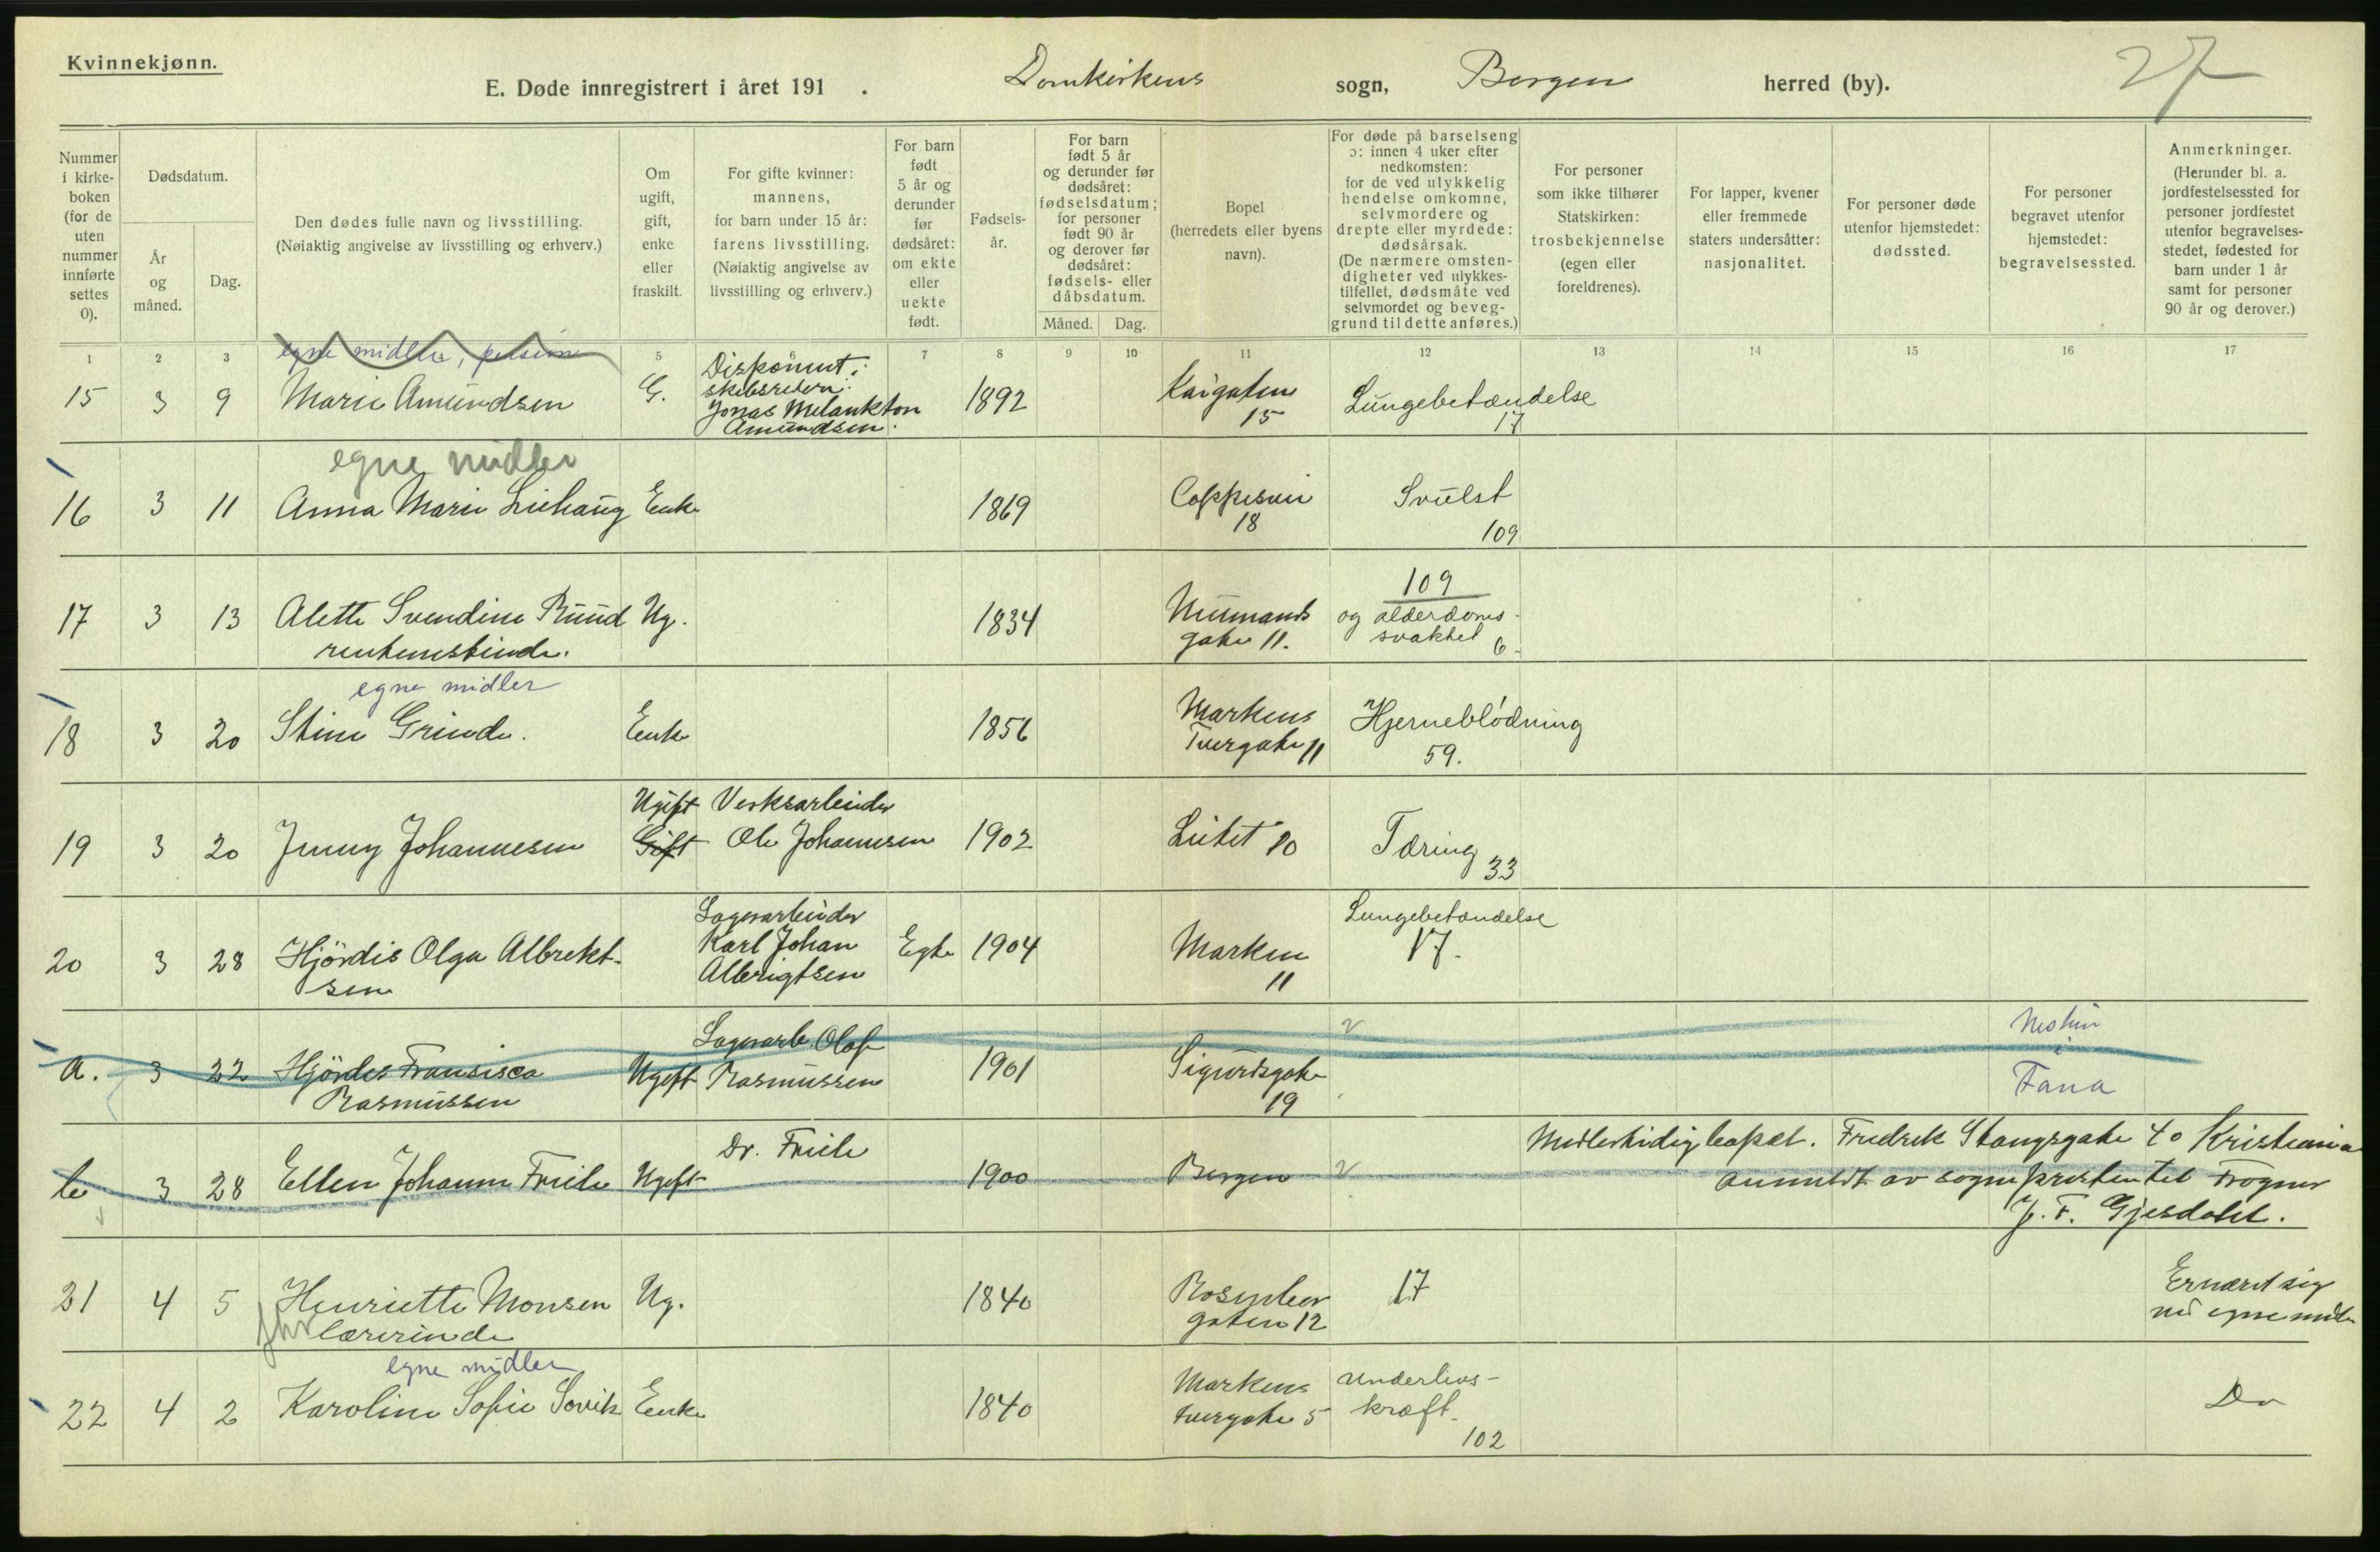 Kvinnekjønn.
E. Døde innregistrert i året 191 . Domkirkens sogn, Bergen herred (by). 27
Nummer i kirke-boken (for de uten nummer innførte settes 0).
Dødsdatum.
År og måned.
Dag.
Den dødes fulle navn og livsstilling.
(Nøiaktig angivelse av livsstilling og erhverv.)
Om ugift, gift, enke eller fraskilt.
For gifte kvinner: mannens, for barn under 15 år: farens livsstilling. (Nøiaktig angivelse av livsstilling og erhverv.)
For barn født 5 år og derunder før dødsåret: om ekte eller uekte født.
Fødsels-år.
For barn født 5 år og derunder før dødsåret: fødselsdatum; for personer født 90 år og derover før dødsåret: fødsels- eller dåbsdatum.
Måned. Dag.
Bopel (herredets eller byens navn).
For døde på barselseng ɔ: innen 4 uker efter nedkomsten: for de ved ulykkelig hendelse omkomne, selvmordere og drepte eller myrdede: dødsårsak. (De nærmere omsten-digheter ved ulykkes-tilfellet, dødsmåte ved selvmordet og beveg-grund til dette anføres.)
For personer som ikke tilhører Statskirken: trosbekjennelse (egen eller foreldrenes).
For lapper, kvener eller fremmede staters undersåtter: nasjonalitet.
For personer døde utenfor hjemstedet: dødssted.
For personer begravet utenfor hjemstedet: begravelsessted.
Anmerkninger. (Herunder bl. a. jordfestelsessted for personer jordfestet utenfor begravelses-stedet, fødested for barn under 1 år samt for personer 90 år og derover.)
1 2 3 5 6 7 8 9 10 11 12 13 14 15 16 17
egne midler, pension
15 3 9 Marie Amundsen G. Diskonint: skibsrederi: Jonas Melankton Amundsen. 1892 Kaigaten 15 Lungebetændelse 17
egne midler
16 3 11 Anna Marie Liehaug Enke 1869 18 Svulst 109
17 3 13 Alette Svendine Ruud Ug. 1834 Neumands gate 11. 109 og alderdoms-svakhet 6.
rentenistinde.
egne midler
18 3 20 Stine Grinde. Enke 1856 Markens Tvergate 11 Hjerneblödning 59.
19 3 20 Jenny Johannesen Ugift Gift Verksarbeider Ole Johannesen 1902 Lütet 10 Tæring 33
20 3 28 Hjördis Olga Albrekt-sen Lagerarbeider Karl Johan Albrigtsen Egte 1904 Marken 11 Lungebetændelse 17.
a. 3 22 Hjördes Fransisca Rasmussen Ugift Lagerarb. Olaf Rasmussen 1901 Sigurdsgate 19 Nestun i Fana
b 3 28 Ellen Johanne Friele Ugift Dr. Friele 1900 Bergen Midlertidig bopæl. Fredrik Stangsgate 40 Kristiania
anmeldt av sognepresten til Frogner
J. F. Gjesdahl.
21 4 5 Henriette Monsen Ug. 1840 Rosenber gaten 12 17 Ernæret sig med egne midler
fhv lærerinde
egne midler
22 4 2 Karoline Sofie Sovik Enke 1840 Markens tvergate 5 Underlivs-kræft. 102 Do